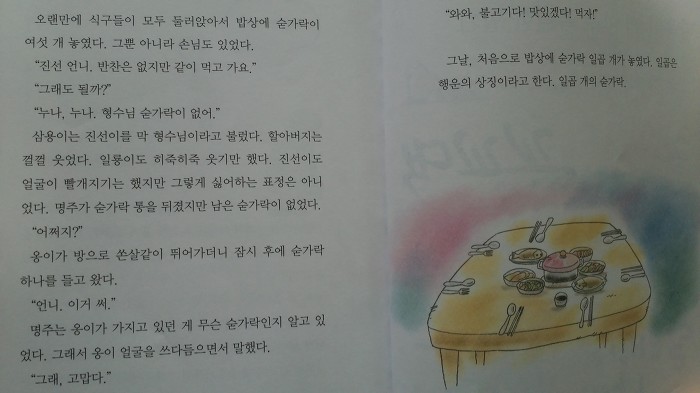 오랜만에 식구들이 모두 둘러앉아서 밥상에 숟가락이
여섯 개 놓였다. 그뿐 아니라 손님도 있었다.
“진선 언니. 반찬은 없지만 같이 먹고 가요.”
“그래도 될까?”
“누나, 누나. 형수님 숟가락이 없어.”
삼용이는 진선이를 막 형수님이라고 불렀다. 할아버지는
껄껄 웃었다. 일룡이도 히죽히죽 웃기만 했다. 진선이도
얼굴이 빨개지기는 했지만 그렇게 싫어하는 표정은 아니
었다. 명주가 숟가락 통을 뒤졌지만 남은 숟가락이 없었다.
“어쩌지?”
옹이가 방으로 쏜살같이 뛰어가더니 잠시 후에 숟가락
하나를 들고 왔다.
“언니. 이거 써.”
명주는 옹이가 가지고 있던 게 무슨 숟가락인지 알고 있
었다. 그래서 옹이 얼굴을 쓰다듬으면서 말했다.
“그래, 고맙다.”
“와와, 불고기다! 맛있겠다! 먹자!”
그날, 처음으로 밥상에 숟가락 일곱 개가 놓였다. 일곱은
행운의 상징이라고 한다. 일곱 개의 숟가락.